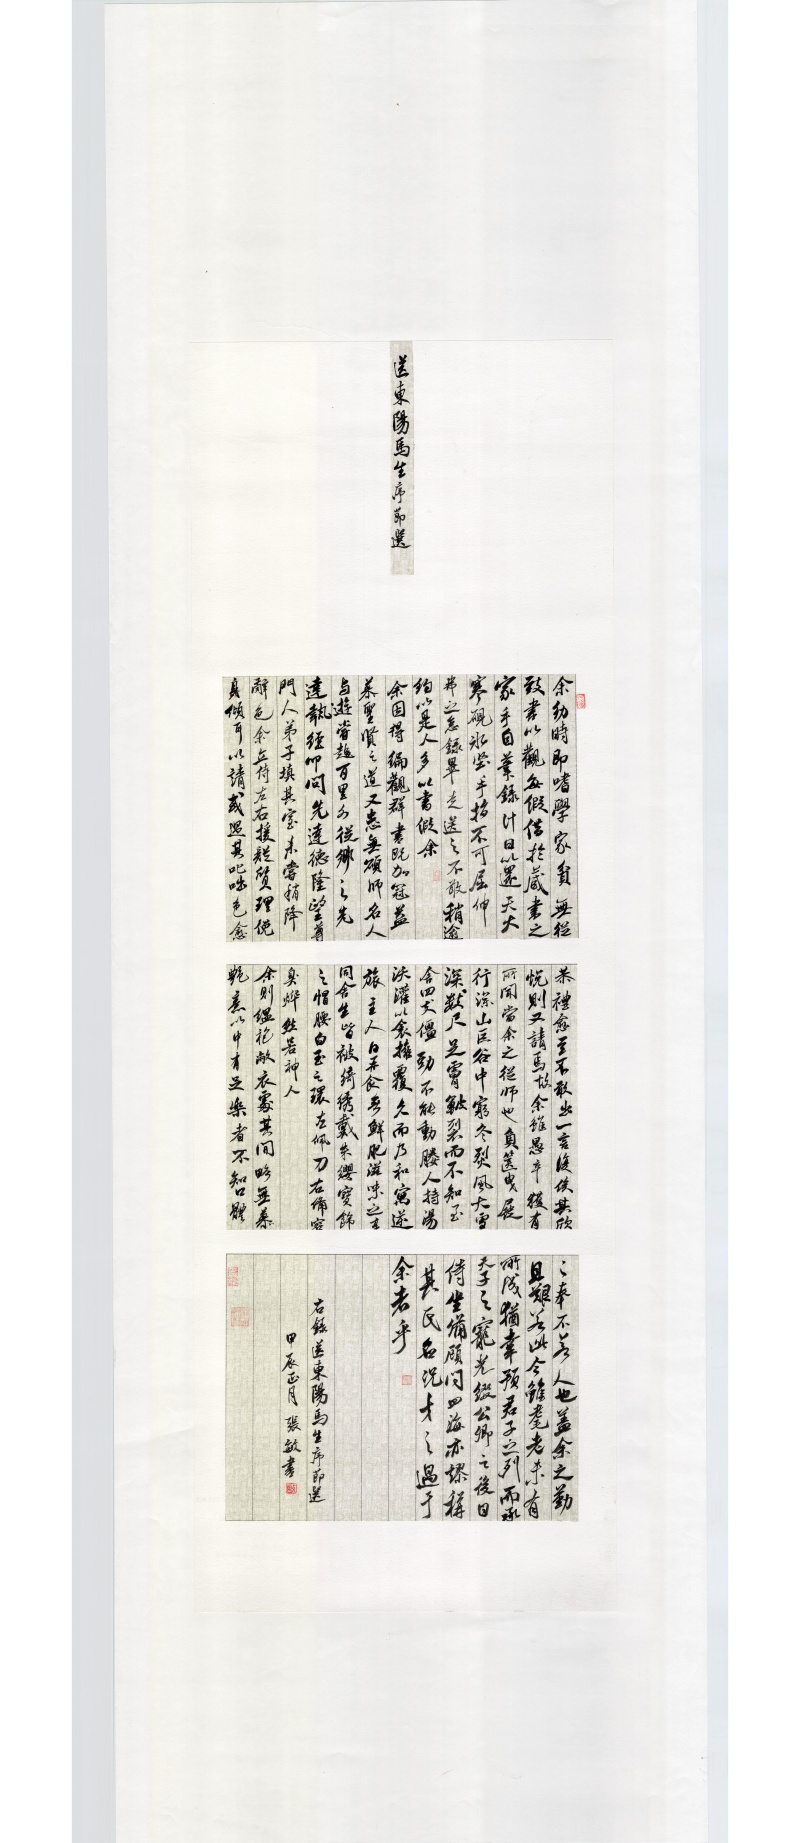 送東陽馬生序節選
余幼時即嗜學家貧無從
致書以觀每假借於藏書之
家手自筆錄計日以還天大
寒硯冰堅手指不可屈伸
弗之怠錄畢走送之不敢稍逾
約以是人多以書假余
余因得徧觀群書既加冠益
慕聖賢之道又患無碩師名人
與遊嘗趨百里外從鄉之先
達執經叩問先達德隆望尊
門人弟子填其室未嘗稍降
辭色余立侍左右援疑質理俛
身傾耳以請或遇其叱咄色愈
恭禮愈至不敢出一言復俟其欣
悅則又請焉故余雖愚卒獲有
所聞當余之從師也負篋曳屣
行深山巨谷中窮冬烈風大雪
深數尺足膚皸裂而不知至
舍四支僵勁不能動媵人持湯
沃灌以衾擁覆久而乃和寓逆
旅主人日再食無鮮肥滋味之享
同舍生皆被綺繡戴朱纓寶飾
之帽腰白玉之環左佩刀右備容
臭燁然若神人
余則縕袍敝衣處其間略無慕
艷意以中有足樂者不知口體
之奉不若人也蓋余之勤
且艱若此今雖耄老未有
所成猶幸預君子之列而承
天子之寵光綴公卿之後日
侍坐備顧問四海亦謬稱
其氏名況才之過于
余者乎
右錄送東陽馬生序節選
甲辰正月張敏書